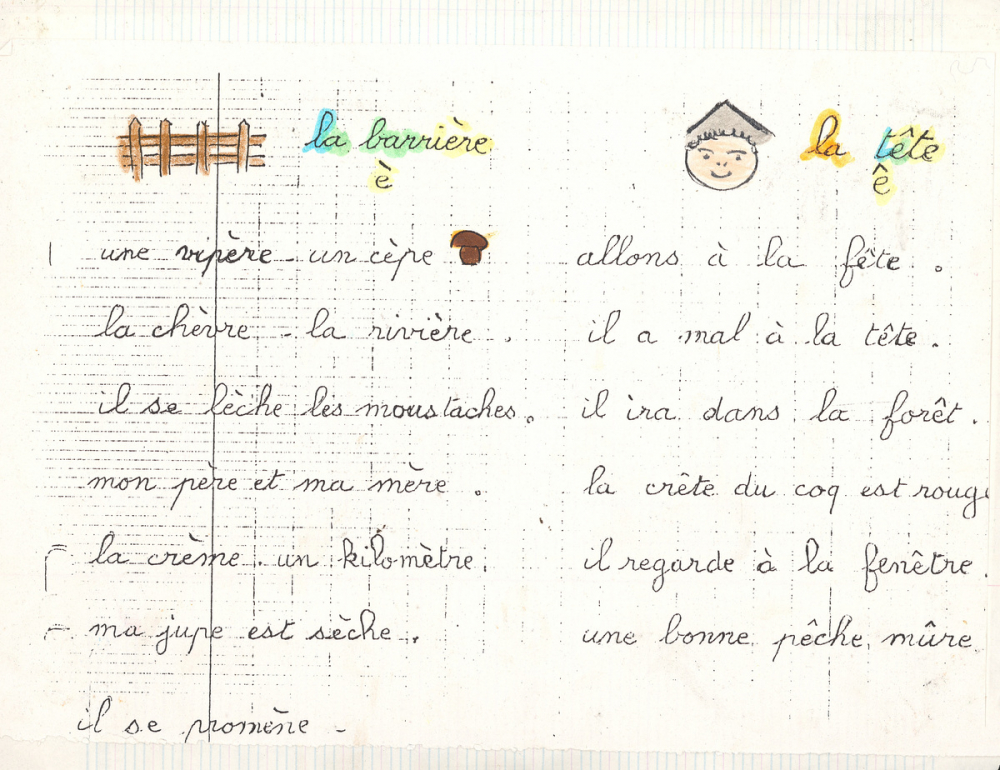 la barrière
è
une vipère - un cèpe
la chèvre - la rivière.
il se lèche les moustaches.
mon père et ma mère.
la crème. un kilomètre.
ma jupe est sèche.
il se promène -
la tête
ê
allons à la fête.
il a mal à la tête.
il ira dans la forêt.
la crête du coq est rouge
il regarde à la fenêtre.
une bonne pêche mûre